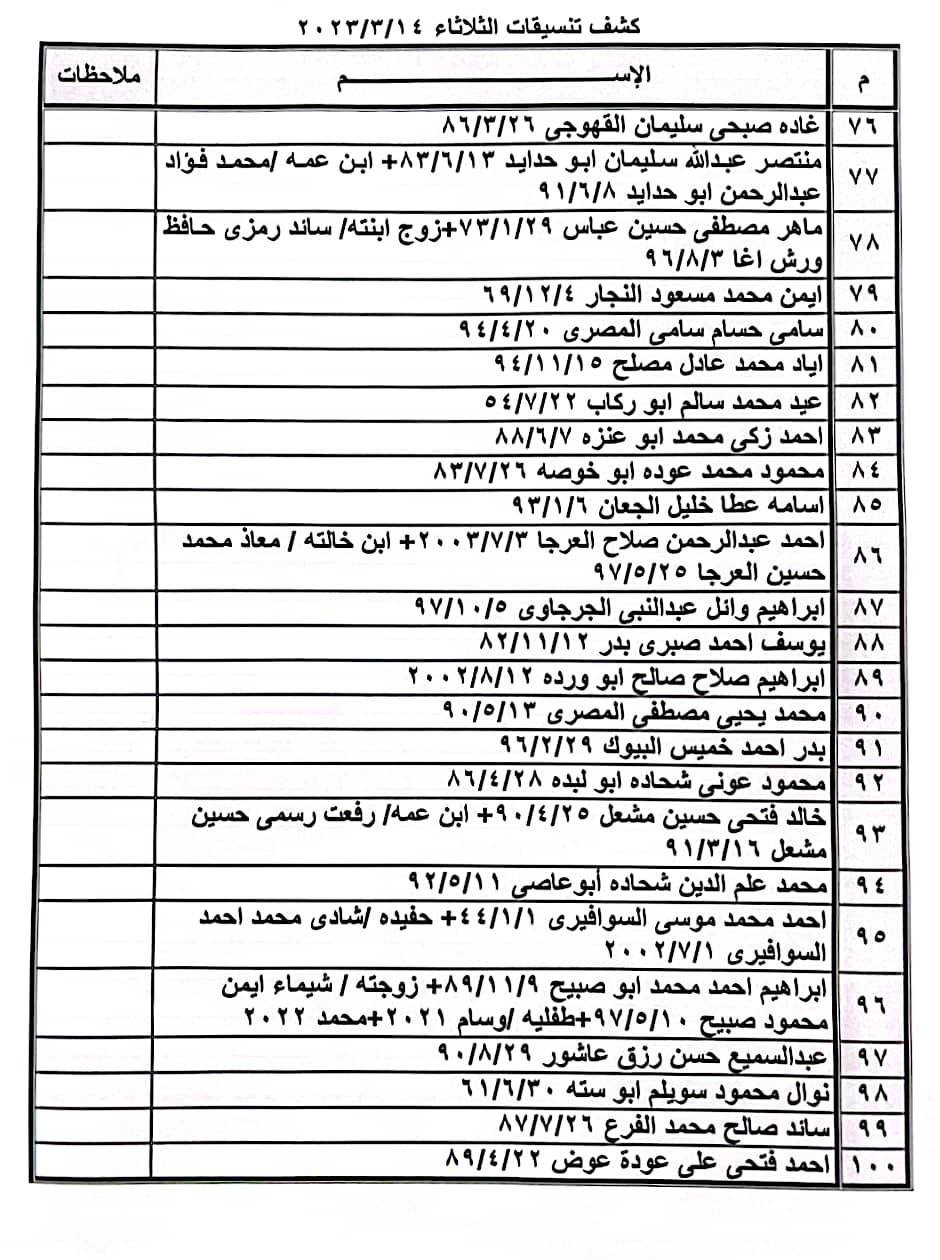 كشف تنسيقات الثلاثاء ٢٠٢٣/٣/١٤
م الإســـــــــــــــــــم ملاحظات
٧٦ غاده صبحى سليمان القهوجى ٨٦/٣/٢٦
٧٧ منتصر عبدالله سليمان ابو حدايد ٨٣/٦/١٣+ ابن عمه /محمد فؤاد
عبدالرحمن ابو حدايد ٩١/٦/٨
٧٨ ماهر مصطفى حسين عباس ٧٣/١/٢٩+زوج ابنته/ سائد رمزى حافظ
ورش اغا ٩٦/٨/٣
٧٩ ايمن محمد مسعود النجار ٦٩/١٢/٤
٨٠ سامى حسام سامى المصرى ٩٤/٤/٢٠
٨١ اياد محمد عادل مصلح ٩٤/١١/١٥
٨٢ عيد محمد سالم ابو ركاب ٥٤/٧/٢٢
٨٣ احمد زكى محمد ابو عنزه ٨٨/٦/٧
٨٤ محمود محمد عوده ابو خوصه ٨٣/٧/٢٦
٨٥ اسامه عطا خليل الجعان ٩٣/١/٦
٨٦ احمد عبدالرحمن صلاح العرجا ٢٠٠٣/٧/٣+ ابن خالته / معاذ محمد
حسين العرجا ٩٧/٥/٢٥
٨٧ ابراهيم وائل عبدالنبى الجرجاوى ٩٧/١٠/٥
٨٨ يوسف احمد صبرى بدر ٨٢/١١/١٢
٨٩ ابراهيم صلاح صالح ابو ورده ٢٠٠٢/٨/١٢
٩٠ محمد يحيى مصطفى المصرى ٩٠/٥/١٣
٩١ بدر احمد خميس البيوك ٩٦/٢/٢٩
٩٢ محمود عونى شحاده ابو لبده ٨٦/٤/٢٨
٩٣ خالد فتحى حسين مشعل ٩٠/٤/٢٥+ ابن عمه/ رفعت رسمى حسين
مشعل ٩١/٣/١٦
٩٤ محمد علم الدين شحاده أبوعاصى ٩٢/٥/١١
٩٥ احمد محمد موسى السوافيرى ٤٤/١/١+ حفيده /شادى محمد احمد
السوافيرى ٢٠٠٢/٧/١
٩٦ ابراهيم احمد محمد ابو صبيح ٨٩/١١/٩+ زوجته / شيماء ايمن
محمود صبيح ٩٧/٥/١٠+طفليه /وسام ٢٠٢١+محمد ٢٠٢٢
٩٧ عبدالسميع حسن رزق عاشور ٩٠/٨/٢٩
٩٨ نوال محمود سويلم ابو سته ٦١/٦/٣٠
٩٩ سائد صالح محمد الفرع ٨٧/٧/٢٦
١٠٠ احمد فتحى على عودة عوض ٨٩/٤/٢٢